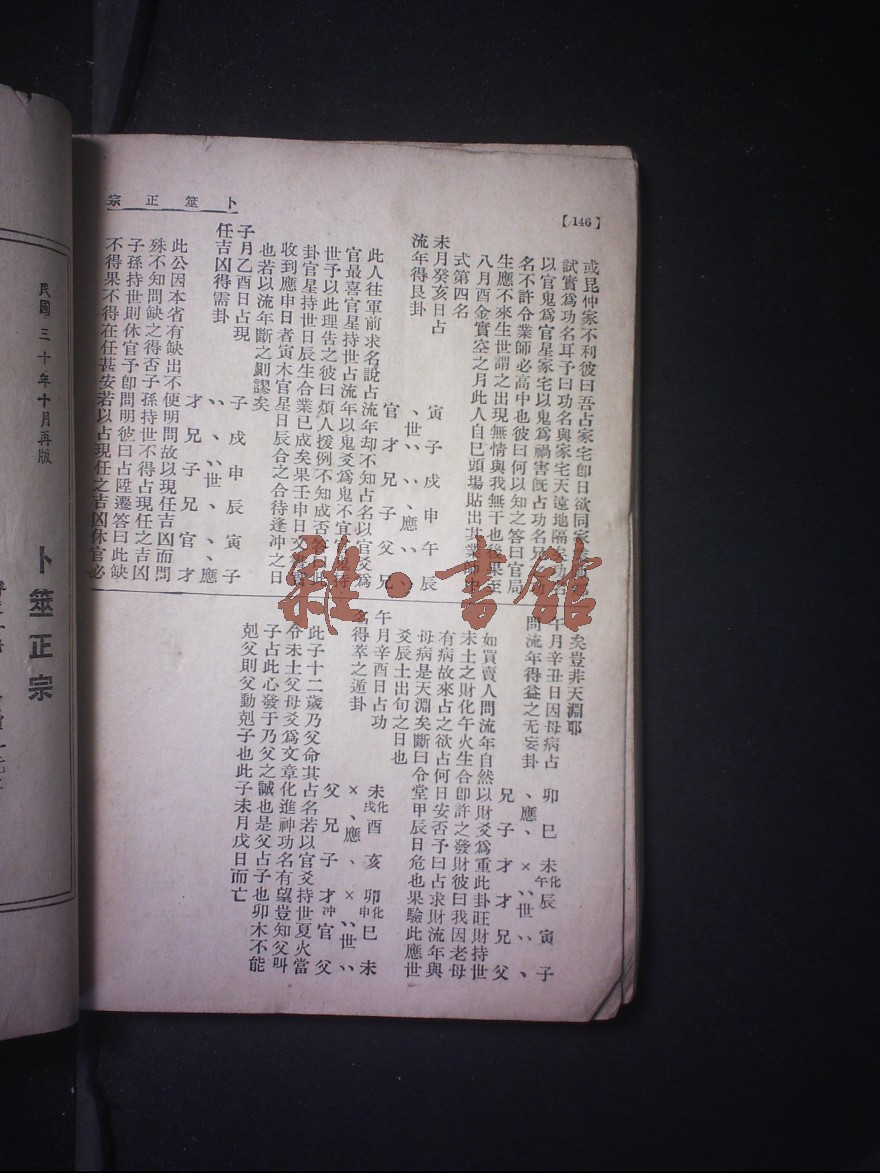 【146】
卜筮正宗
或昆仲家不利彼曰吾占家宅卽日欲同家
試實爲功名耳予曰功名與家宅天遠地隔矣功名
以官鬼爲官星家宅以鬼爲禍害旣占功名兄
名不許令業師必高中也彼曰何以知之答曰官局
生應不來生世謂之出現無情與我無干也後果至
八月酉金實空之月此人自巳頭場貼出其業師中
式第四名
未月癸亥日占
流年得艮卦
寅子戌申午辰
、世、、、應、、
官才兄子父兄
此人往軍前求名說占流年却不知占名以官爻爲
官最喜官星持世占流年以鬼爻爲鬼不宜官鬼持
世予以此理告之彼曰煩人援例不知成否答曰此
卦官星持世日辰生合業已成矣果壬申日文書
收到應申日者寅木官星日辰合之合待逢冲之日
也若以流年斷之則謬矣
子月乙酉日占現
任吉凶得需卦
子戌申辰寅子
、、、、、世、、、應
才兄子兄官才
此公因本省有缺出不便明問故以現任吉凶而問
殊不知問缺之得否子孫持世不得占現任之吉凶
子孫持世則休官予卽問明彼曰占陞遷答曰此缺
不得果不得在任甚安若以占現任之吉凶休官必
矣豈非天淵耶
午月辛丑日因母病占
問流年得益之无妄卦
卯巳未化午辰寅子
、應、×、、世、、、
兄子才才兄父
如買賣人問流年自然以財爻爲重此卦旺財持世
未土之財化午火生合卽許之發財彼曰我因老母
有病故來占之欲占何日安否予曰占求財流年與
母病是天淵矣斷曰令堂甲辰日危也果驗此應世
爻辰土出旬之日也
午月辛酉日占功
名得萃之遁卦
未化戌酉亥卯化申巳未
×、應、×、、世、、
父兄子才冲官父
此子十二歲乃父命其占名若以官爻持世夏火當
令未土父母爻爲文章化進神功名有望豈知父叫
子占此心發于乃父之誠也是父占子也卯木不能
剋父則父動剋子也此子未月戊日而亡
民國三十年十月再版
卜筮正宗
雜·書館